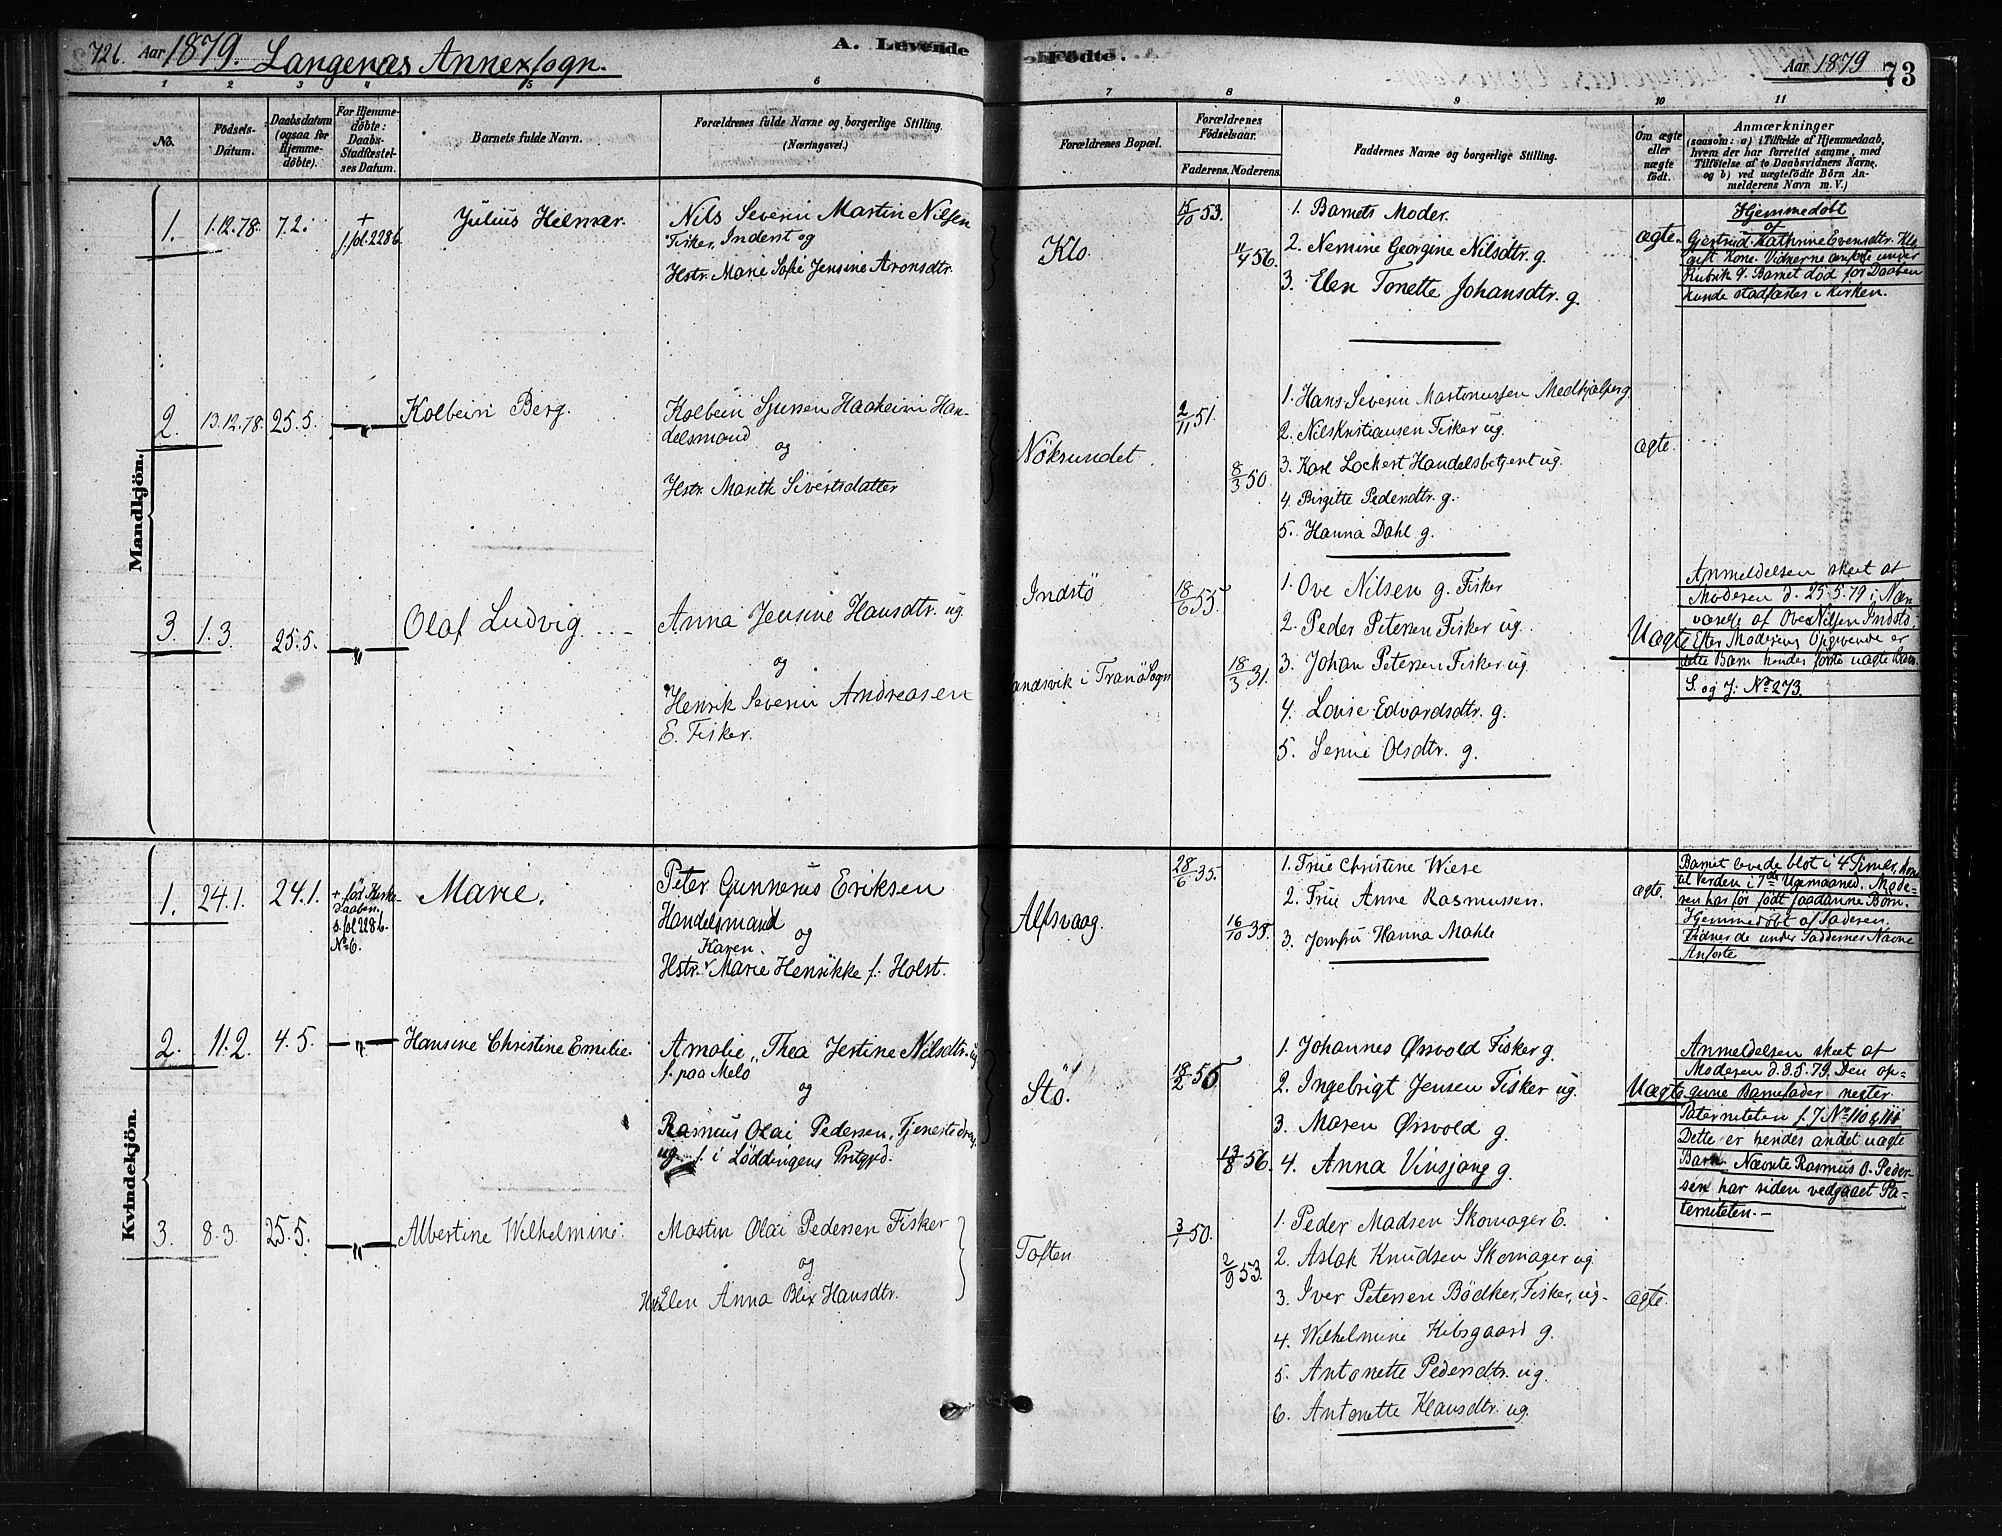 72b. Aar 1879. Langenæs Annexsogn.
A. Levende
Fødte.
Aar 1879
73
1 2 3 4 5 6 7 8 9 10 11
No.
Fødsels-
Datum.
Daabsdatum
(ogsaa for
Hjemme-
døbte).
For Hjemme-
døbte:
Daabs-
Stadfæstel-
ses Datum.
Barnets fulde Navn.
Forældrenes fulde Navne og borgerlige Stilling.
(Næringsvei.)
Forældrenes Bopæl.
Forældrenes
Fødselsaar.
Faderens. Moderens.
Faddernes Navne og borgerlige Stilling.
Om ægte
eller
uægte
født.
Anmærkninger
(saasom: a) i Tilfælde af Hjemmedaab,
hvem der har forrettet samme, med
Tilføielse af to Daabsvidners Navne,
og b) ved uægtefødte Børn An-
melderens Navn m. V.)
Mandkjön.
1. 1.12.78. 7.2. +
f. fol. 228 6.
Julius Helmer.
Nils Severin Martin Nilsen
Fisker, Inderst og
Hstr. Marie Sofie Jensine Aronsdtr.
Klo.
15/10 53.
11/4 56.
1. Barnets Moder.
2. Nemine Georgine Nilsdtr. g.
3. Elen Tonette Johansdtr. g.
ægte.
Hjemmedøbt
af
Gjertrud Kathrine Evensdtr. Klo
gift Kone. Vidnerne anførte under
Rubrik 9. Barnet død før Daaben
kunde stadfæstes i Kirken.
2. 13.12.78. 25.5. — " —
Kolbein Berg.
Kolbein Sjursen Haaheim Han-
delsmand
og
Hstr. Marith Sivertsdatter
Nöksundet.
2/11 51.
8/3 50.
1. Hans Severin Martinussen Medhjælper g.
2. Nils Kristiansen Fisker ug.
3. Karl Lockert Handelsbetjent ug.
4. Birgitte Pedersdtr. g.
5. Hanna Dahl g.
ægte.
3. 1.3. 25.5. — " —
Olaf Ludvig.
Anna Jensine Hansdtr. ug.
og
Henrik Severin Andreasen
E. Fisker.
Indstö
andsvik i Tranö Sogn
18/6 55.
18/3 31.
1. Ove Nilsen g. Fisker
2. Peder Petersen Fisker ug.
3. Johan Petersen Fisker ug.
4. Lovise Edvardsdtr. g.
5. Serine Olsdtr. g.
Uægte
Anmeldelsen skeet af
Moderen d. 25.5.79 i Nær
værelse af Ove Nilsen Indstö.
Efter Moderens Opgivende er
dette Barn hendes første uægte Barn.
S. og J: No 273.
Kvindekjön.
1. 24.1. 24.1.
+ før Kirke-
daaben.
s. fol 228 6.
No 6.
Marie.
Peter Gunnerus Eriksen
Handelsmand
Karen og
Hstr. Marie Henrikke f. Holst.
Alfsvaag.
28/6 35.
16/10 38.
1. Frue Christine Wiese
2. Frue Anne Rasmussen.
3. Jomfru Hanna Mahle
ægte.
Barnet levede blot i 4 Timer, kom
til Verden i 7de Ugemaaned. Mode-
ren har før født saadanne Børn.
Hjemmedøbt af Faderen.
Vidnerne under Faddernes Navne
Anførte
2. 11.2. 4.5. — " —
Hansine Christine Emilie.
Amalie Thea Jertine Nilsdtr. ug
f. paa Melö
og
Rasmus Olai Pedersen, Tjenestedreng
ug. f. i Löddingens Prstgjd.
Stö.
18/2 55
13/8 56.
1. Johannes Ørsvold Fisker g.
2. Ingebrigt Jensen Fisker ug.
3. Maren Ørsvold g.
4. Anna Vinsjang g.
Uægte
Anmeldelsen skeet af
Moderen d. 3.5.79. Den op-
givne Barnefader negter
Paterniteten f. 7 No 110 & 111
Dette er hendes andet uægte
Barn. Nævnte Rasmus O. Peder-
sen har siden vedgaaet Pa-
terniteten. —
3. 8.3. 25.5. — " —
Albertine Wilhelmine.
Martin Olai Pedersen Fisker
og
Hst. Elen Anna Blix Hansdtr.
Toften.
3/1 50.
2/9 53.
1. Peder Madsen Skomager E.
2. Aslak Knudsen Skomager ug.
3. Iver Petersen Bödker, Fisker, ug.
4. Wilhelmine Kibsgaard g.
5. Antonette Pedersdtr. ug.
6. Antonette Klausdtr. ug.
ægte.